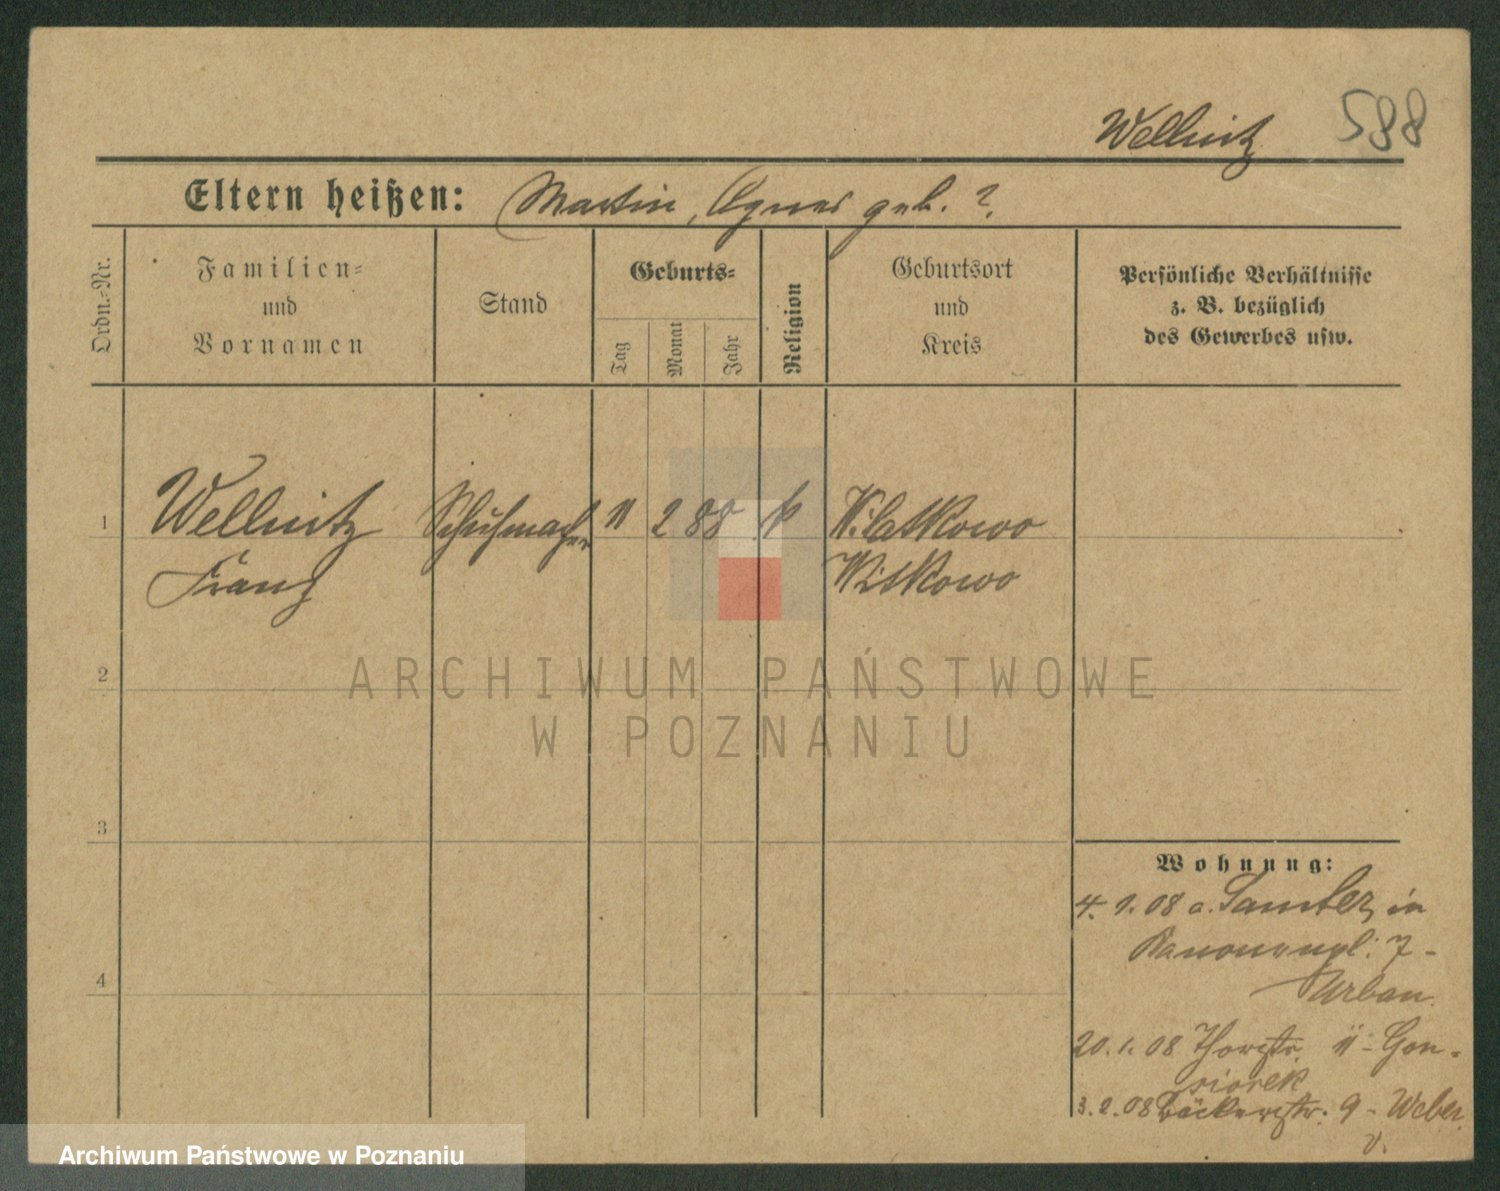 Wellnitz 588
Eltern heißen: Martin, Agnes geb. ?.
Ordn.-Nr.
Familien-
und
Vornamen
Stand
Geburts-
Tag
Monat
Jahr
Religion
Geburtsort
und
Kreis
Persönliche Verhältnisse
z. B. bezüglich
des Gewerbes usw.
1 Wellnitz Schuhmacher 11 2 88 k Wilatkowo
Franz Witkowo
2
3
4
Wohnung:
4. 1. 08 a. Samter, in
Kanonenpl. 7 -
Urban.
20. 1. 08 Thorstr. 11 - Gon-
siorek
3. 2. 08 Bäckerstr. 9 - Weber.
v.
ARCHIWUM PAŃSTWOWE
W POZNANIU
Archiwum Państwowe w Poznaniu